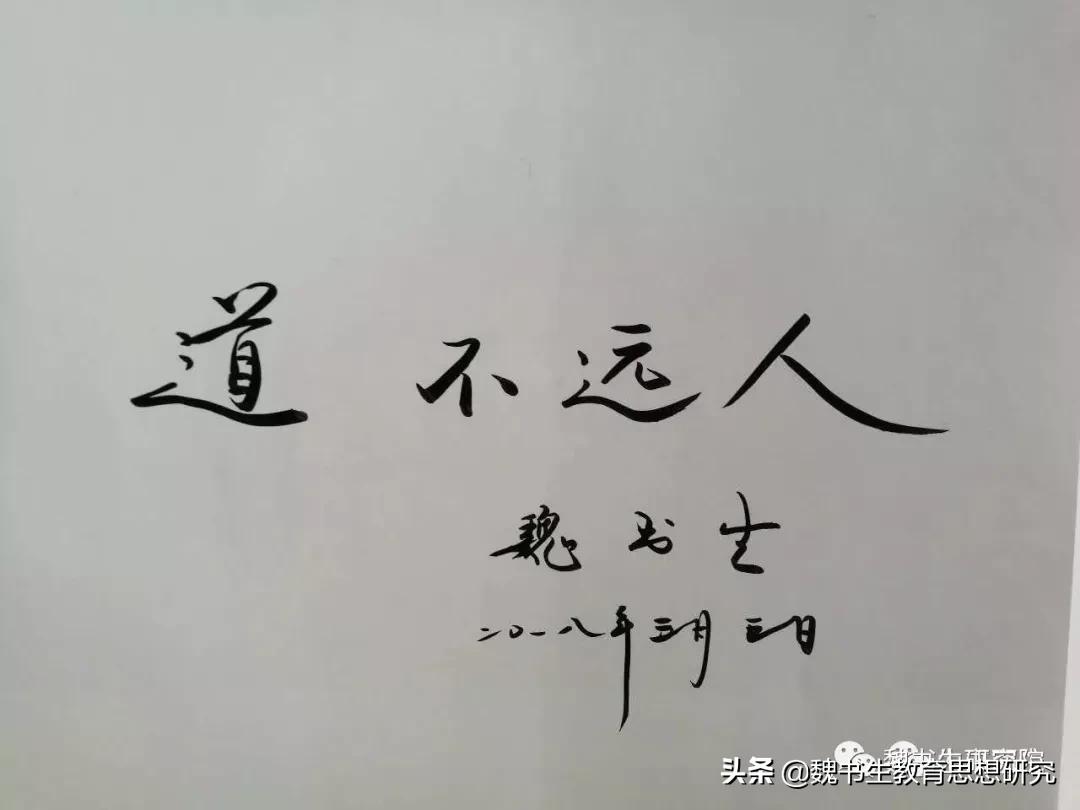 道不远人
魏书生
二〇一八年三月三日
魏书生研究院
头条 @魏书生教育思想研究